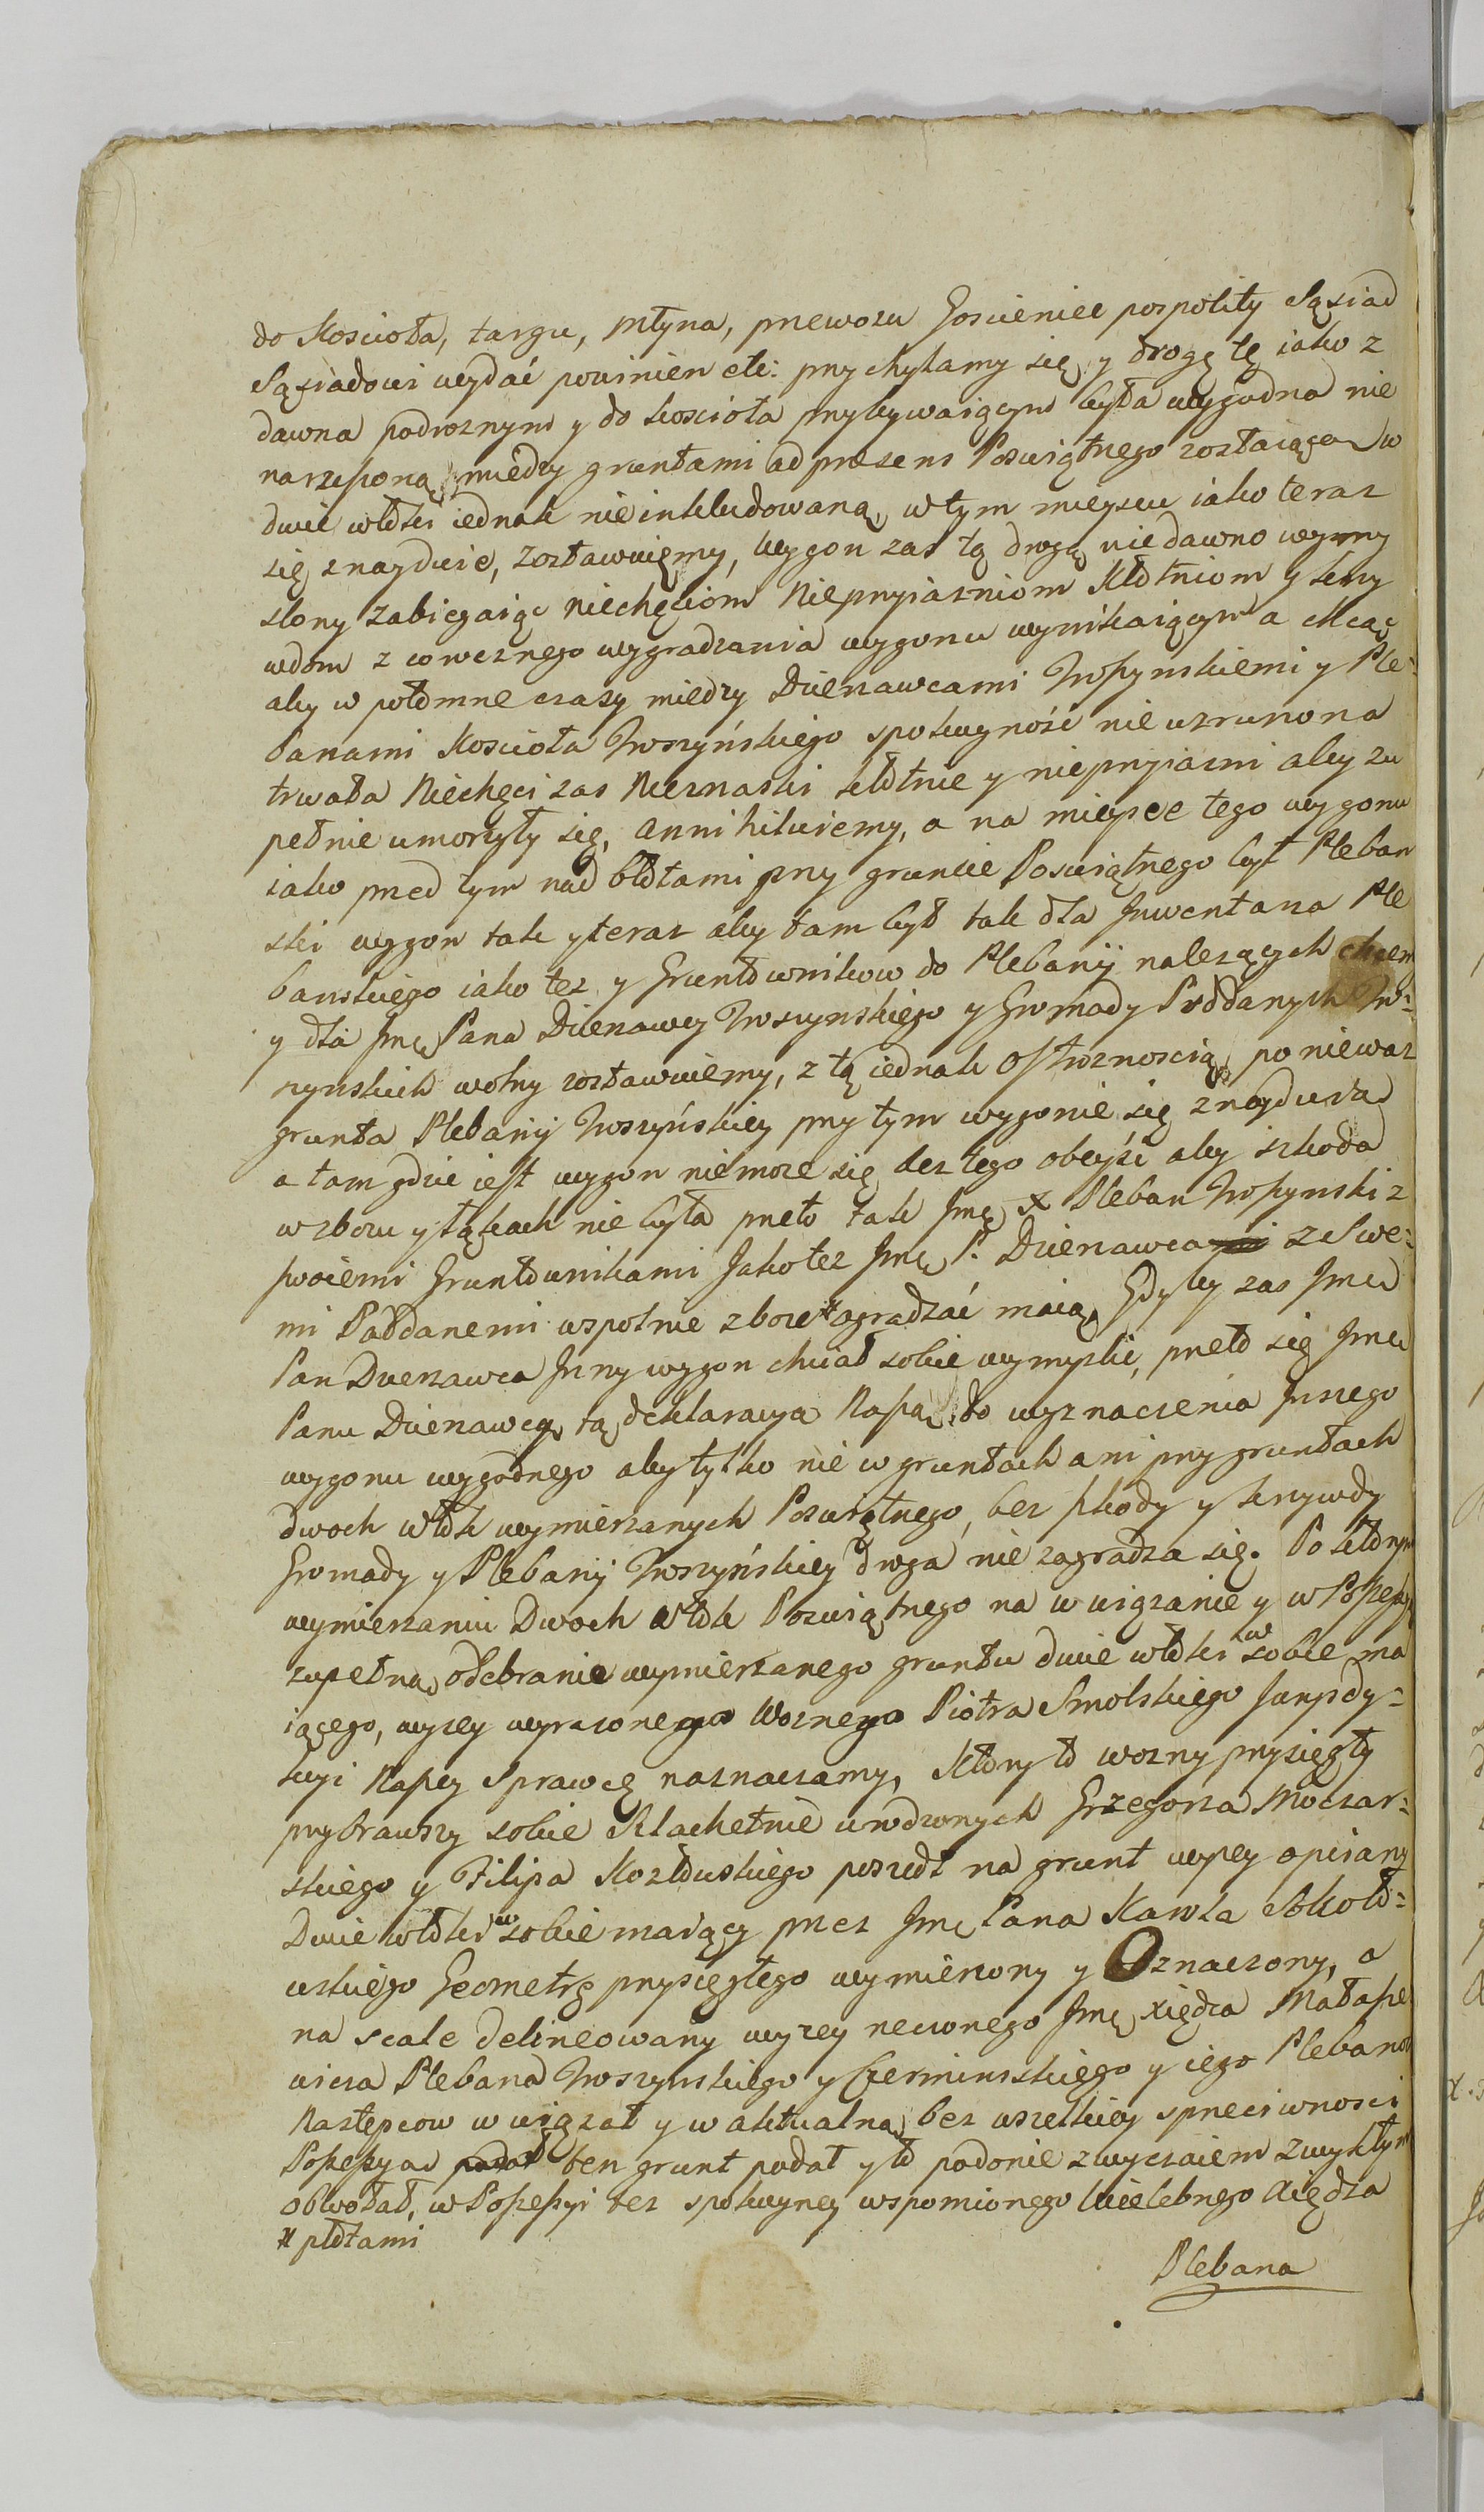 do Koscioła, targu, młyna, przewozu Gosieniec pospolity Sąsiad
Sąsiadowi wydać powinien etc: przychylamy się y drogę tę iako z
dawna podroznym y do koscioła przybywaiącym była wygodna nie
naruszoną między gruntami ad præsens Poswiątnego zostaiącą w
dwie włoki iednak nie inkludowaną, w tym mieyscu iako teraz
się znayduie, zostawuiemy, wygon zas tą drogą niedawno wymy
slony zabiegaiąc niechęciom Nieprzyiazniom Kłotniom y krzy
wdom z corocznego wygradzania wygonu wynikaiącym a chcąc
aby w potomne czasy miedzy Dzierzawcami Troszynskiemi y Ple:
banami Kosciola Troszyńskiego spokoyność nie wzruszona
trwała Niechęci zas Niesnaski kłotnie y nieprzyiazni aby zu
pełnie umorzyły się, annihiluiemy, a na mieysce tego wygonu
iako przed tym nad błotami przy gruncie Poswiątnego był Pleban
ski wygon tak y teraz aby tam był tak dla Inwentarza Ple
banskiego iako tez y Gruntownikow do Plebanij nalezących chcemy
y dla Jmę Pana Dzierzawcy Troszynskiego y Gromady Poddanych Tro:
szynskich wolny zostawuiemy, z tą iednak Ostroznoscią, poniewaz
grunta Plebanij Troszyńskiey przy tym wygonie się znayduią
a tam gdzie iest wygon niemoze się bez tego obeyść aby szkoda
w zbozu y łąkach nie była przeto tak Jmę X Pleban Troszynski z
swoiemi Gruntownikami Jako tez Jmę P. Dzierzawca z Swe:
mi Poddanemi wspolnie zboze # ogradzać maią, Gdyby zas Jmę
Pan Dzierzawca Inny wygon chciał sobie wymyslić, przeto się Jmę
Panu Dzierzawcy tą deklaracya Naszą do wyznaczenia Innego
wygonu wygodnego aby tylko nie w gruntach ani przy gruntach
dwoch włok wymierzanych Poswiątnego, bez szkody y krzywdy
Gromady y Plebanij Troszyńskiey droga nie zagradza się. Po którym
wymierzaniu Dwoch włok Poswiątnego na wwiązanie y w Possessyą
zupełną odebranie wymierzanego gruntu dwie włoki w sobie ma
iącego, wyzey wyrazonego Woznego Piotra Smolskiego Juryzdy:
kcyi Naszey Sprawcę naznaczamy, Ktory to wozny przysięgły
przybrawszy sobie Szlachetnie urodzonych Grzegorza Moczar:
skiego y Filipa Kozłowskiego poszedł na grunt wyzey opisany
Dwie włoki w sobie maiący przez Jmę Pana Karola Sokoło:
wskiego Geometrę przysięgłego wymierzony y Oznaczony, a
na scale delineowany wyzey rzeczonego Jmę xiędza Matasze
wicza Plebana Troszynskiego y Czerwinskiego y iego Plebanow
Następcow wwiązał y w aktualną bez wszelkiey sprzeciwnosci
Possessyą ten grunt podał y to podanie zwyczaiem zwykłym
obwołał, w Possessyi tez spokoyney wspomionego Wielebnego Xiędza
# płotami
Plebana